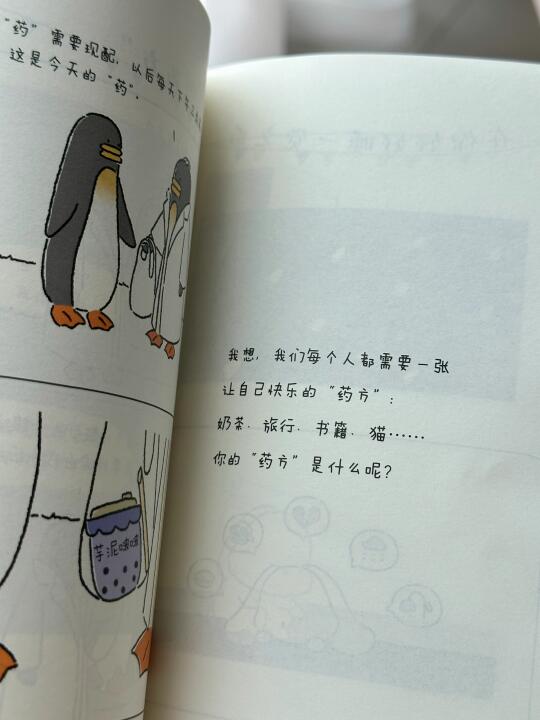 “药”需要现配，以后每天下午三
这是今天的“药”.
芋泥啵啵
我想，我们每个人都需要一张
让自己快乐的“药方”：
奶茶、旅行、书籍、猫……
你的“药方”是什么呢？